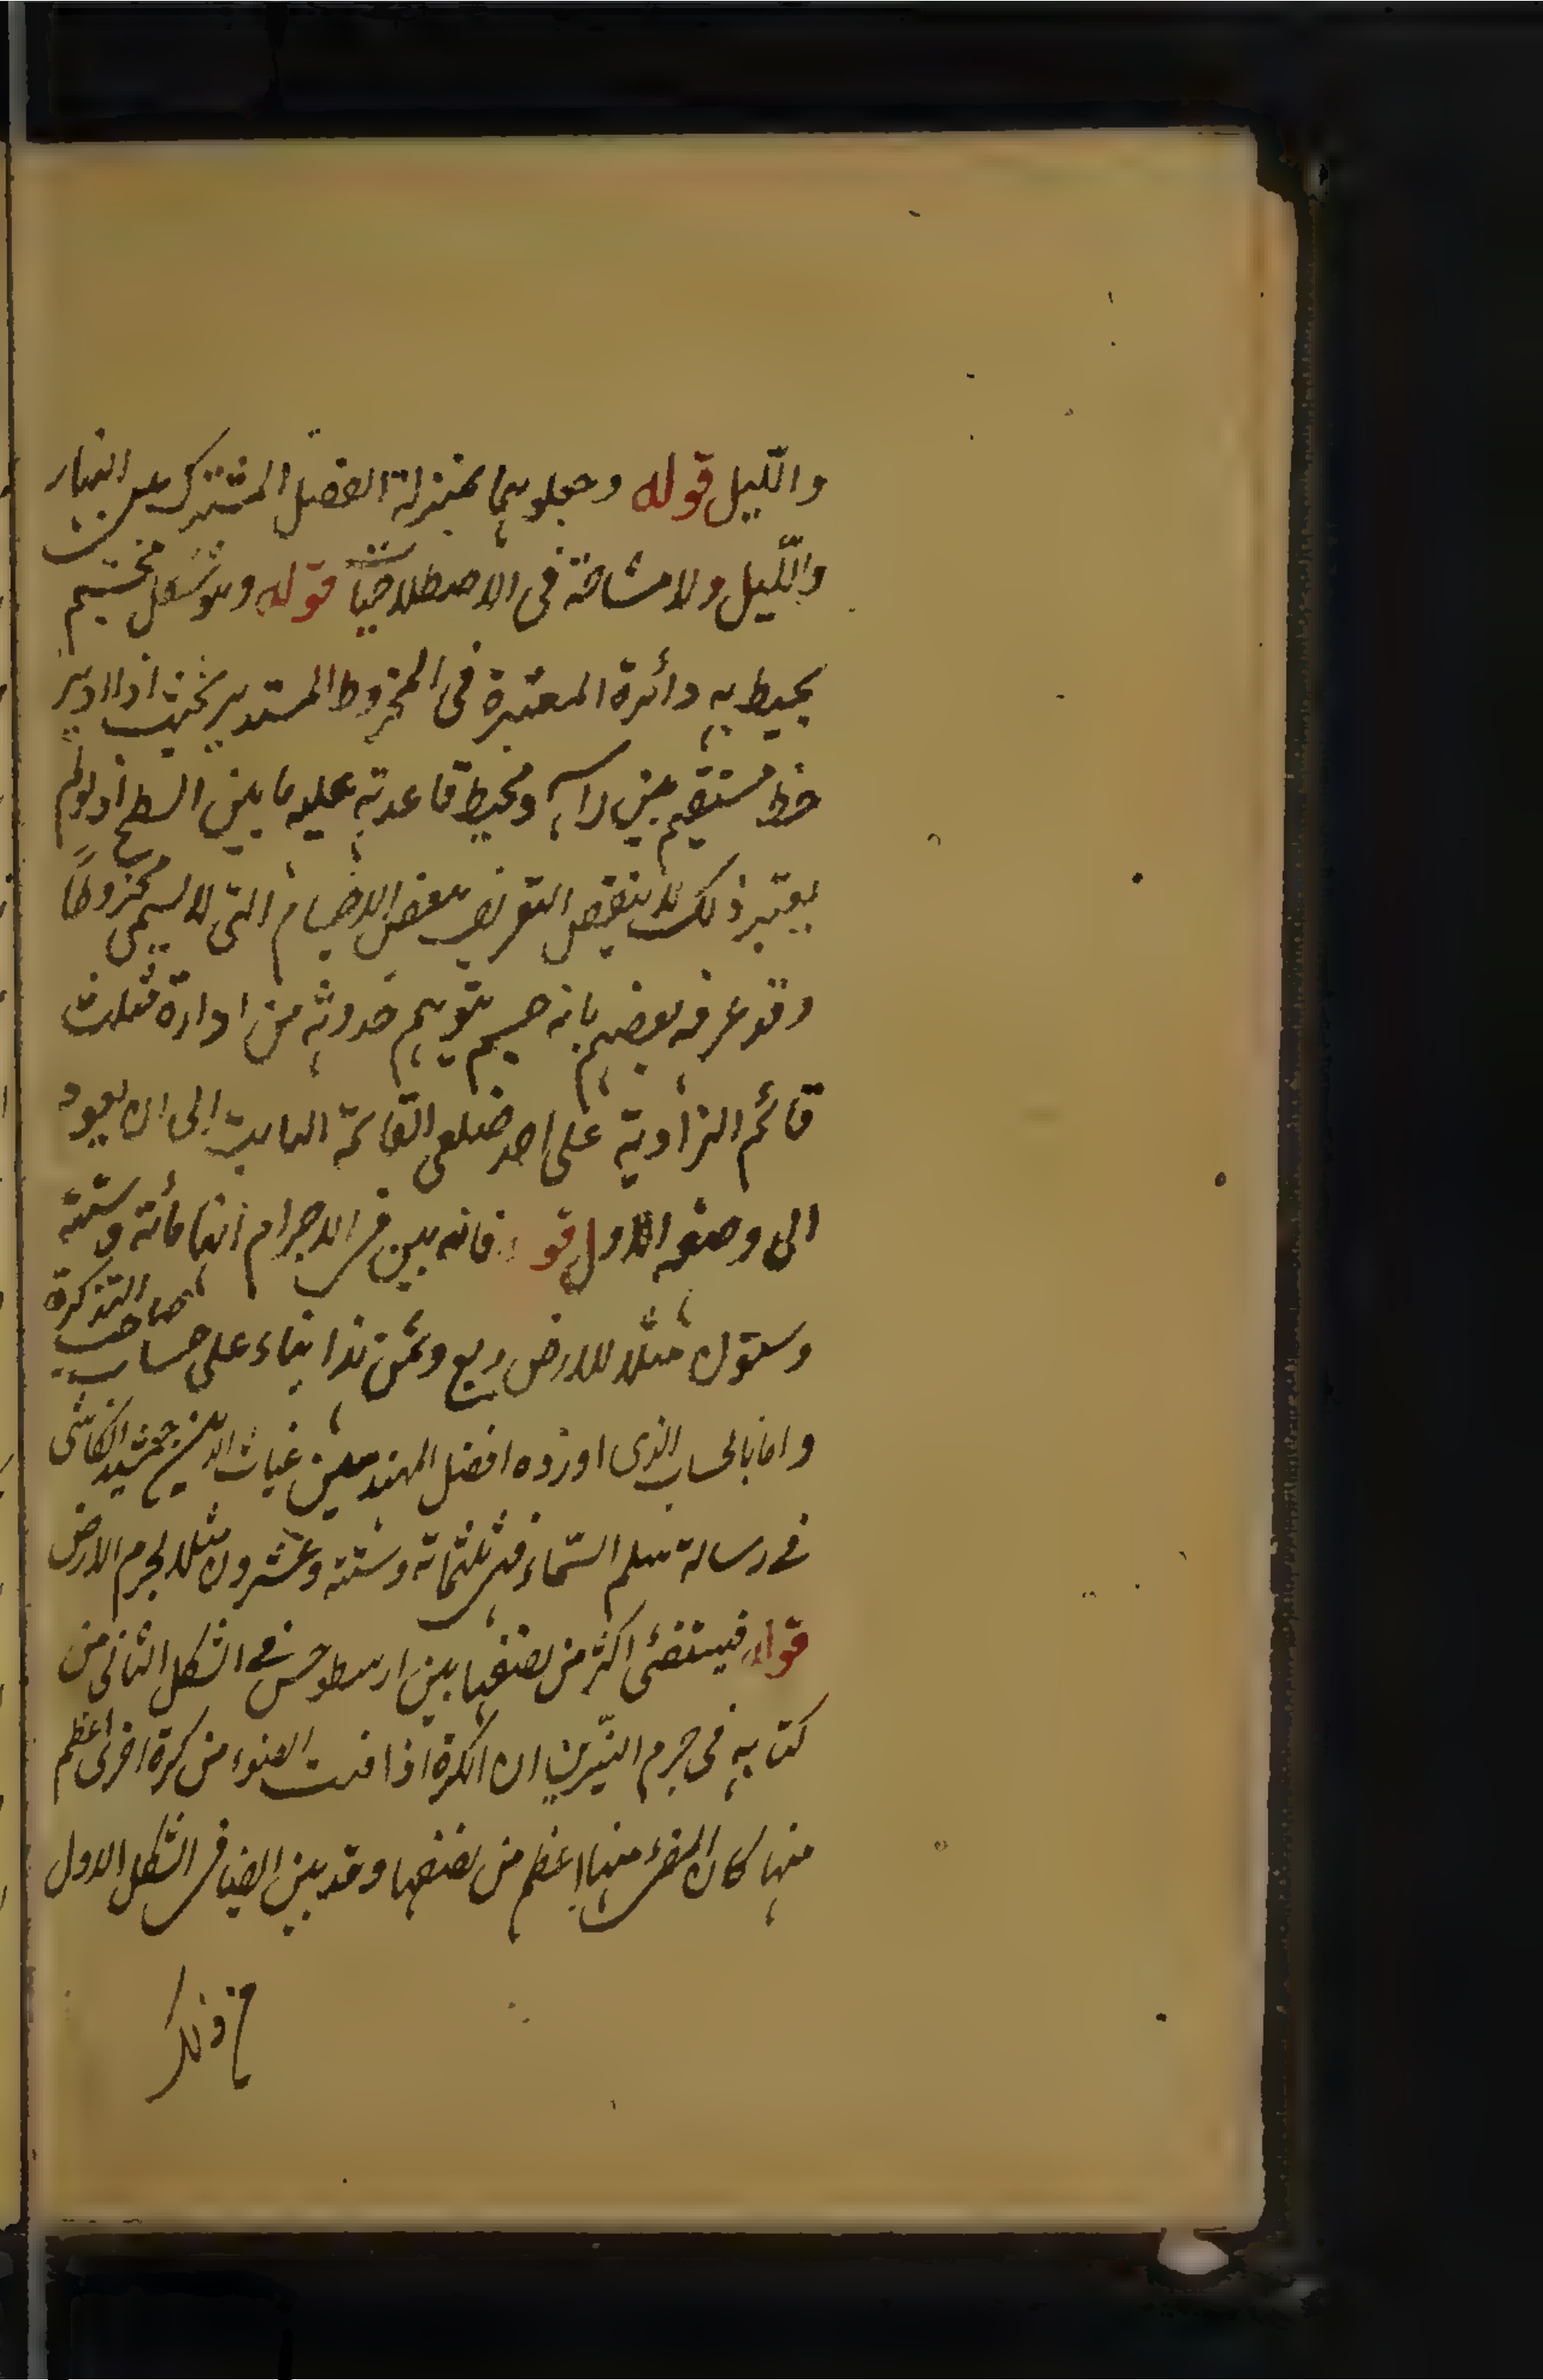 واللّيل قوله وجعلوهما بمنزلة الفصل المشترك بين النهار
واللّيل ولا مشاحة فى الاصطلاحيات قوله وهو شكل مجسم
يحيط به دائرة المعتبرة فى المخروط المستدير بحيث اذا ادير
خط مستقيم بين راسه ومحيط قاعدته عليه ماس السطح اذ لو لم
يعتبر ذلك لا ينتقض التعريف ببعض الاجسام التى لا يسمى مخروطا
وقد عرفه بعضهم بانه جسم يتوهم حدوثه من ادارة مثلث
قائم الزاوية على احد ضلعى القائمة الثابت الى ان يعود
الى وضعه الاول قوله فانه بين فى الاجرام انها مائة وستة
وستون مثلا للارض وربع وثمن هذا بناء على حساب صاحب التذكرة
واما بالحساب الذى اورده افضل المهندسين غياث الدين جمشيد الكاشى
فے رسالة سلم السّماء فهى ثلثمائة وستة وعشرون مثلا لجرم الارض
قوله فيستضئ اكثر من نصفها بين ارسطوخس فے الشكل الثانى من
كتابه فى جرم النيّرين ان الكرة اذا قبلت الضوء من كرة اخرى اعظم
منها كان المضئ منها اعظم من نصفها وقد بين ايضا فى الشكل الاول
من ذلك